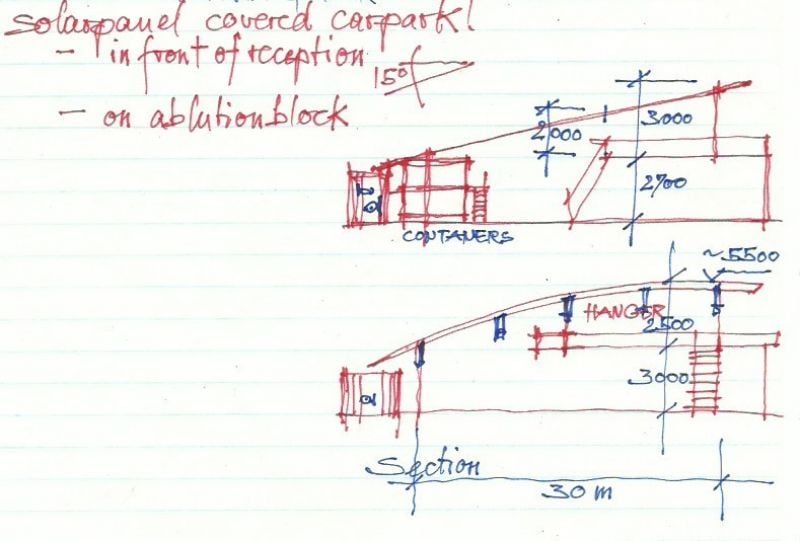 solarpanel covered carpark!
- in front of reception
15°
- on ablution block
2000
3000
2700
CONTANERS
~5500
HANGER
2500
3000
Section
30 m